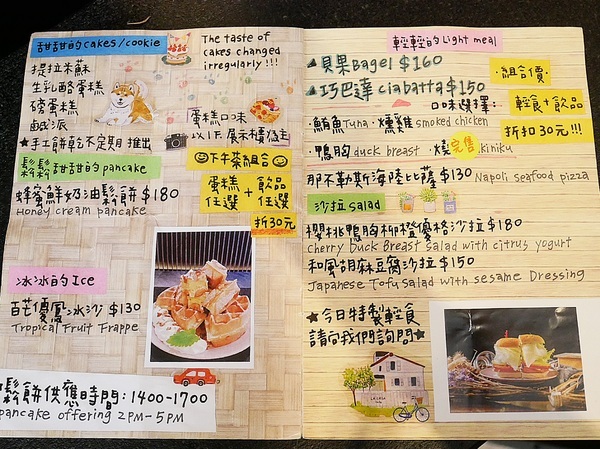 甜甜的cakes/cookie
The taste of
cakes changed
irregularly!!!
提拉米蘇
生乳酪蛋糕
磅蛋糕
鹹派
★手工餅乾不定期推出
蛋糕口味
以下展示櫃為主
鬆鬆甜甜的pancake
蜂蜜鮮奶油鬆餅$180
Honey cream pancake
下午茶組合
蛋糕任選+飲品任選
折30元
冰冰的Ice
百芒優鳳冰沙$130
Tropical Fruit Frappe
鬆餅供應時間:1400-1700
pancake offering 2PM-5PM
輕輕的Light meal
▲貝果Bagel $160
▲巧巴達ciabatta$150
口味選擇:
·組合價·
輕食+飲品
折扣30元!!!
·鮪魚Tuna·燻雞smoked chicken
·鴨胸duck breast·燒 完售 kiniku
那不勒斯海陸比薩$130 Napoli seafood pizza
沙拉salad
櫻桃鴨胸柳橙優格沙拉$180
Cherry Duck Breast Salad with citrus yogurt
和風胡麻豆腐沙拉$150
Japanese Tofu Salad with sesame Dressing
★今日特製輕食
請向我們詢問★